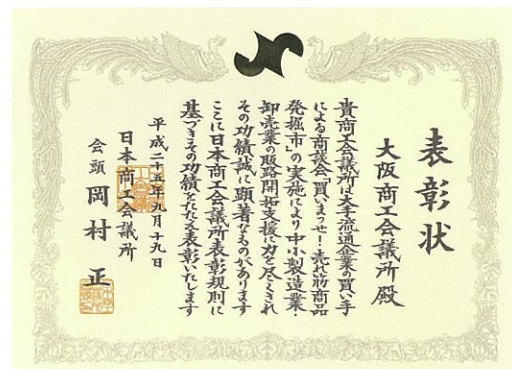 表彰状
大阪商工会議所殿
貴商工会議所は大手流通企業の買い手
による商談会「買いまっせ！売れ筋商品
発掘市」の実施により中小製造業・
卸売業の販路開拓支援に力を尽くされ
その功績誠に顕著なるものがあります
ここに日本商工会議所表彰規則に
基づきその功績をたたえ表彰いたします
平成二十五年九月十九日
日本商工会議所
会頭 岡村 正